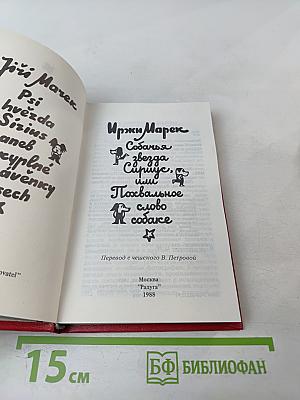 Jiří Marek
Psí
hvězda
Sirius
aneb
Иржи Марек
Собачья
звезда
Сириус,
или
Похвальное
слово
собаке
Перевод с чешского В. Петровой
Москва
"Радуга"
1988
15 см
БФ БИБЛИОФАН